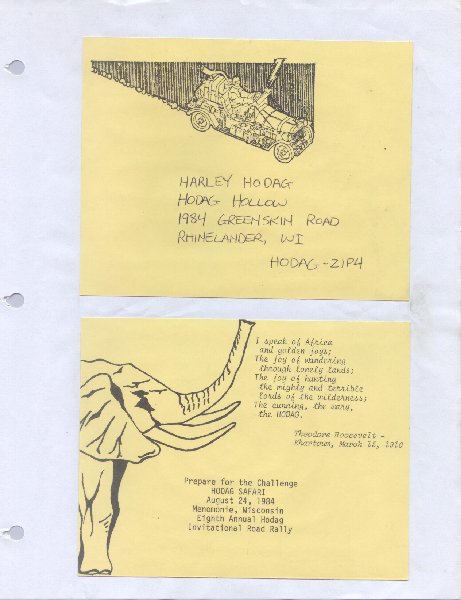 HARLEY HODAG
HODAG HOLLOW
1984 GREENSKIN ROAD
RHINELANDER, WI
HODAG-ZIP4
I speak of Africa
and golden joys;
The joy of wandering
through lonely lands;
The joy of hunting
the mighty and terrible
lords of the wilderness;
The cunning, the wary,
the HODAG.
Theodore Roosevelt -
Khartoum, March 15, 1910
Prepare for the Challenge
HODAG SAFARI
August 24, 1984
Menomonie, Wisconsin
Eighth Annual Hodag
Invitational Road Rally